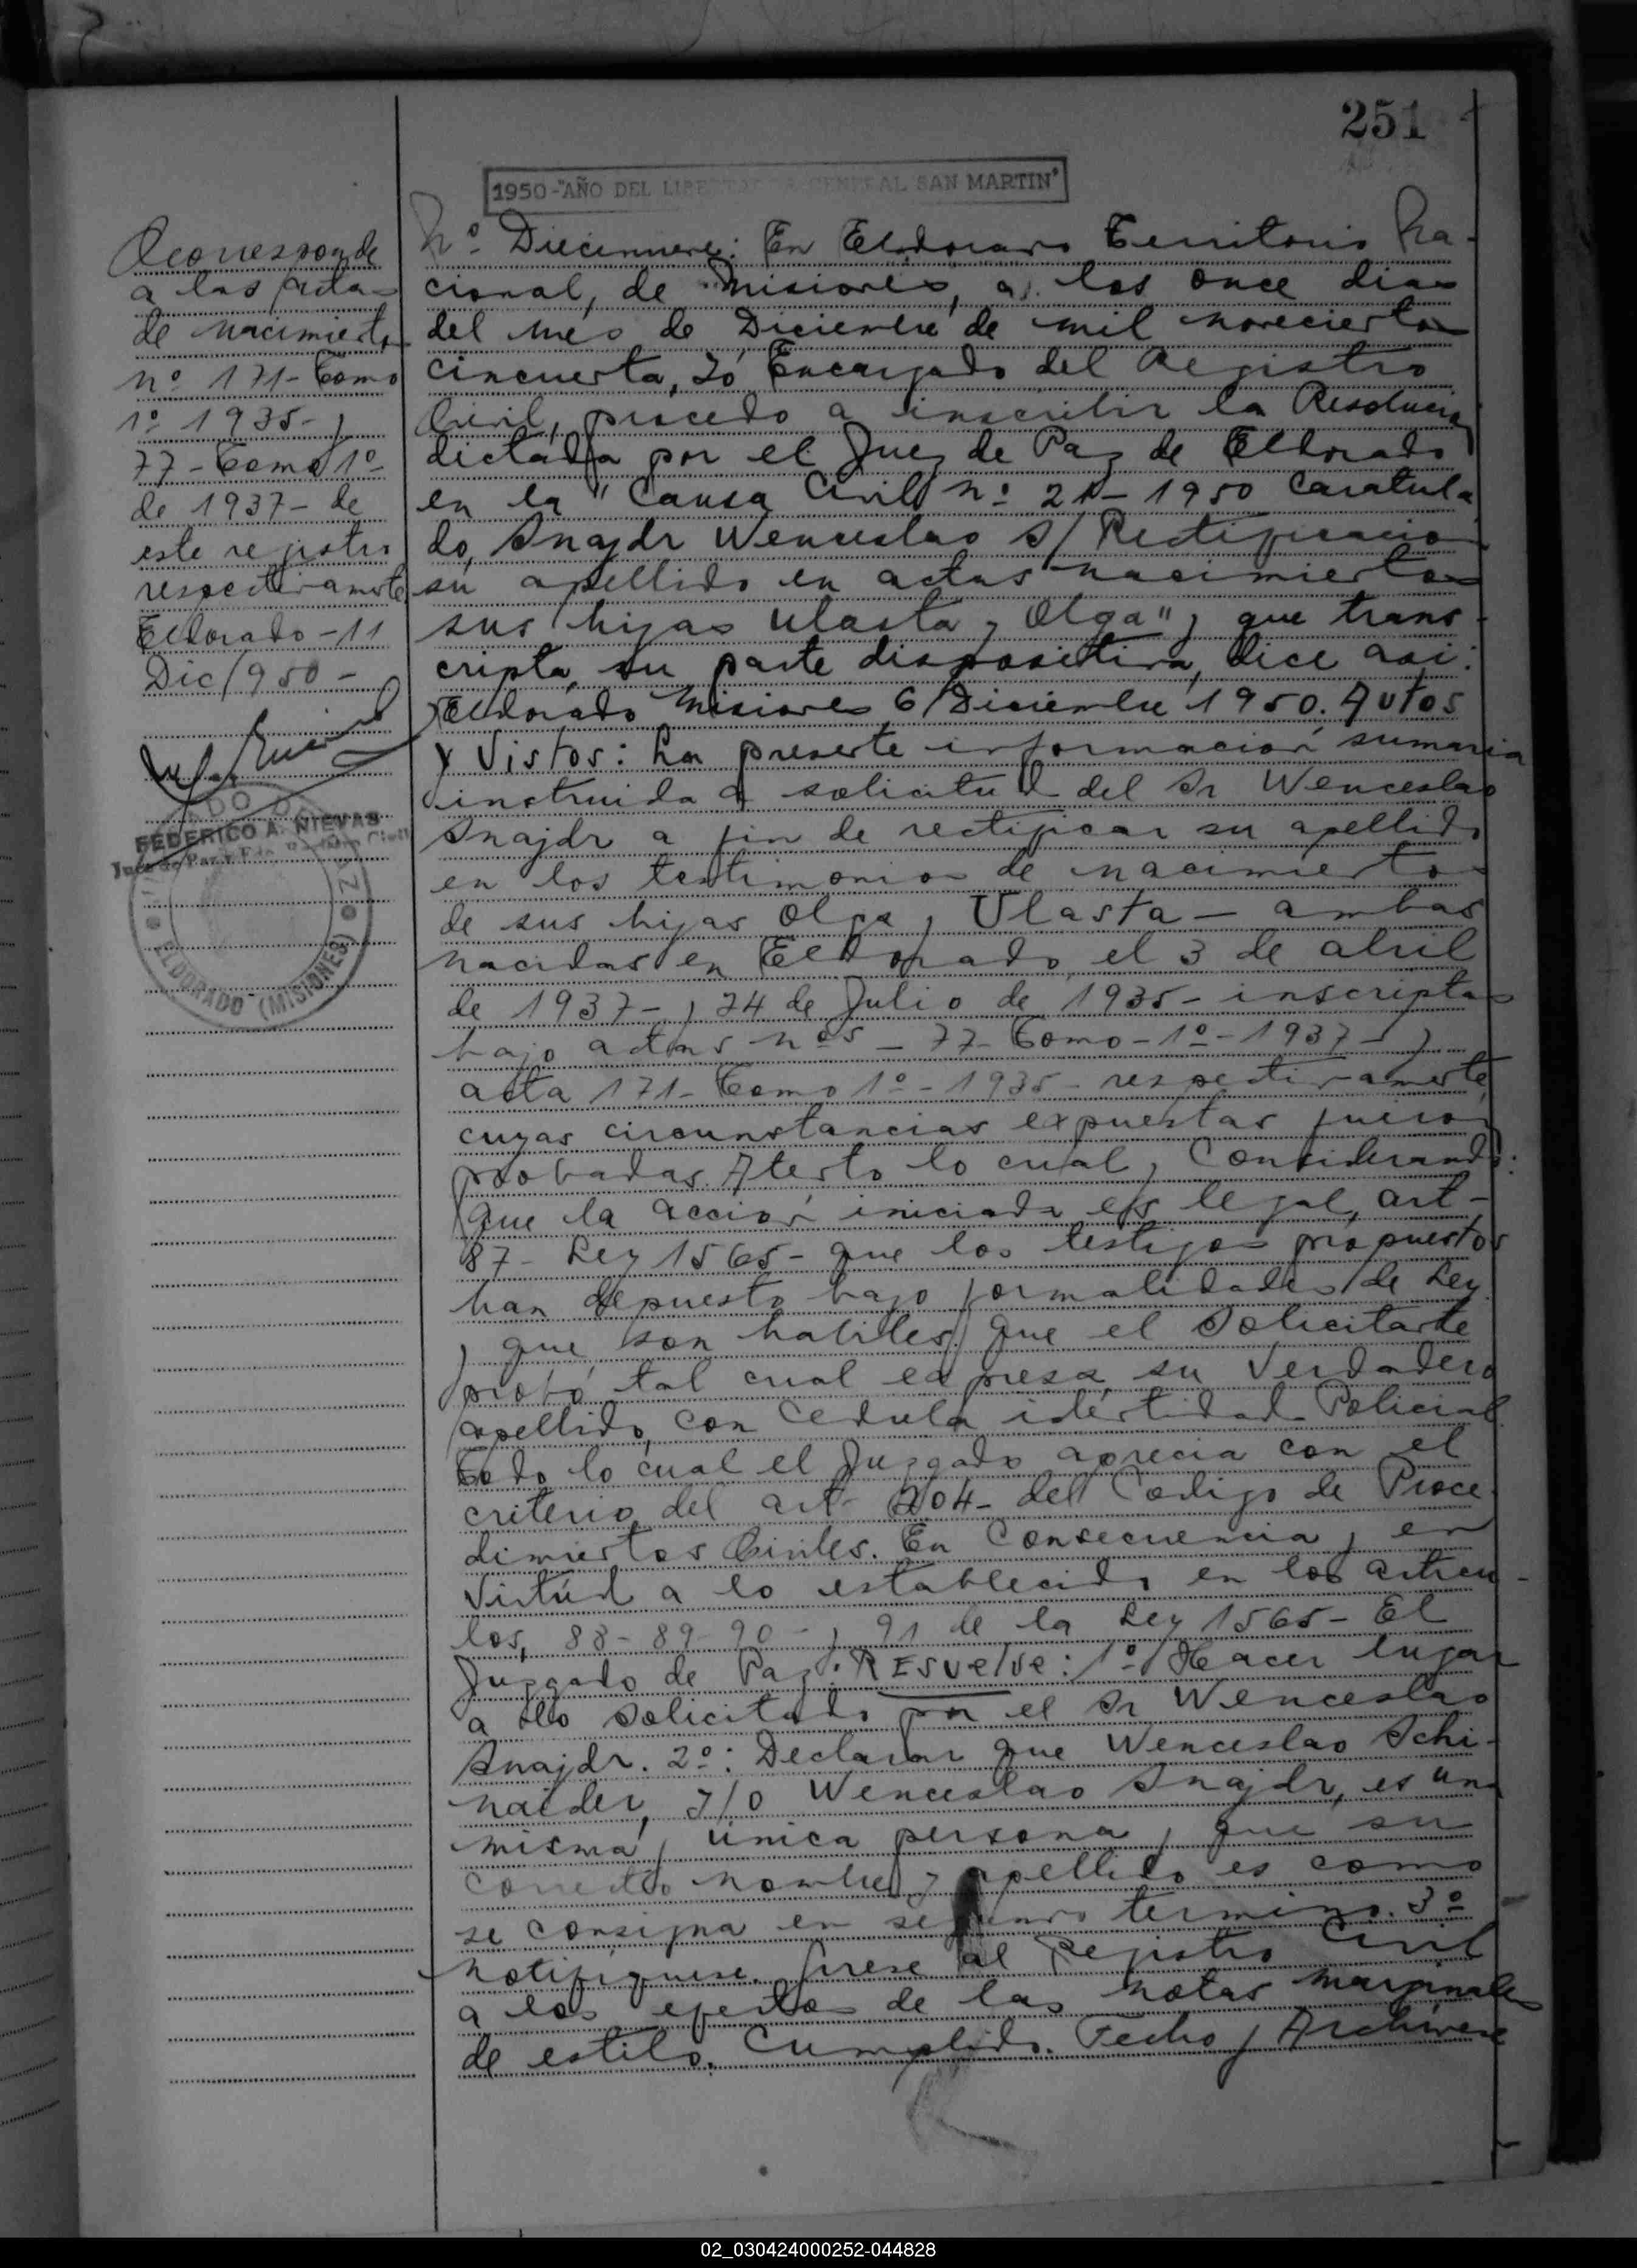 251
1950-"AÑO DEL LIBERTADOR GENERAL SAN MARTIN"
a las actas
de nacimiento
nº 171- Tomo
1º 1935- y
77- Tomo 1º
de 1937- de
este registro
respectivamente
Eldorado -11
Dic/950-
FEDERICO A. NIEVAS
Juez de Paz y Enc. Registro Civil
ELDORADO (MISIONES)
Nº Diecinueve: En Eldorado Territorio Na-
cional, de Misiones, a los once dias
del mes de Diciembre de mil novecientos
cincuenta, Yo Encargado del Registro
Civil, procedo a inscribir la Resolución
dictada por el Juez de Paz de Eldorado
en la "Causa Civil nº 21-1950 Caratula
do, Snajdr Wenceslao S/ Rectificación
su apellido en actas nacimientos
sus hijas Ulasta y Olga", que trans-
cripta, su parte dispositiva, dice asi:
Eldorado Misiones 6/Diciembre 1950. Autos
y Vistos: La presente información sumaria
instruida a solicitud del Sr Wenceslao
Snajdr a fin de rectificar su apellido
en los testimonios de nacimientos
de sus hijas Olga y Ulasta - ambas
nacidas en Eldorado, el 3 de abril
de 1937- y 24 de Julio de 1935- inscriptas
bajo actas nos - 77- Tomo-1º-1937- y
acta 171- Tomo 1º-1935- respectivamente,
cuyas circunstancias expuestas fueron
probadas. Atento lo cual, y Considerando:
que la acción iniciada es legal, art-
87- Ley 1565- que los testigos propuestos
han depuesto bajo formalidades de Ley
y que son habiles. Que el Solicitante
probó tal cual expresa su Verdadero
apellido, con Cedula identidad Policial
Todo lo cual el Juzgado aprecia con el
criterio del art- 204- del Codigo de Proce-
dimientos Civiles. En Consecuencia y en
Virtúd a lo establecido en los articu-
los, 88-89-90- y 91 de la Ley 1565- El
Juzgado de Paz: RESUelve: 1º Hacer lugar
a lo Solicitado por el Sr Wenceslao
Snajdr. 2º: Declarar que Wenceslao Schi-
naider, Y/O Wenceslao Snajdr, es una
misma y única persona, y que su
correcto nombre y apellido es como
se consigna en segundo termino. 3º
Notifiquese. Girese al Registro Civil
a los efectos de las notas marginales
de estilo. Cumplido. Fecho y Archivese
02_030424000252-044828